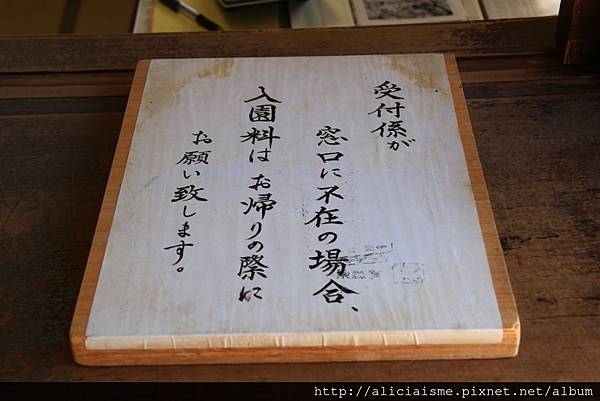 受付係が
窓口に不在の場合、
入園料はお帰りの際に
お願い致します。
http://aliciaisme.pixnet.net/album